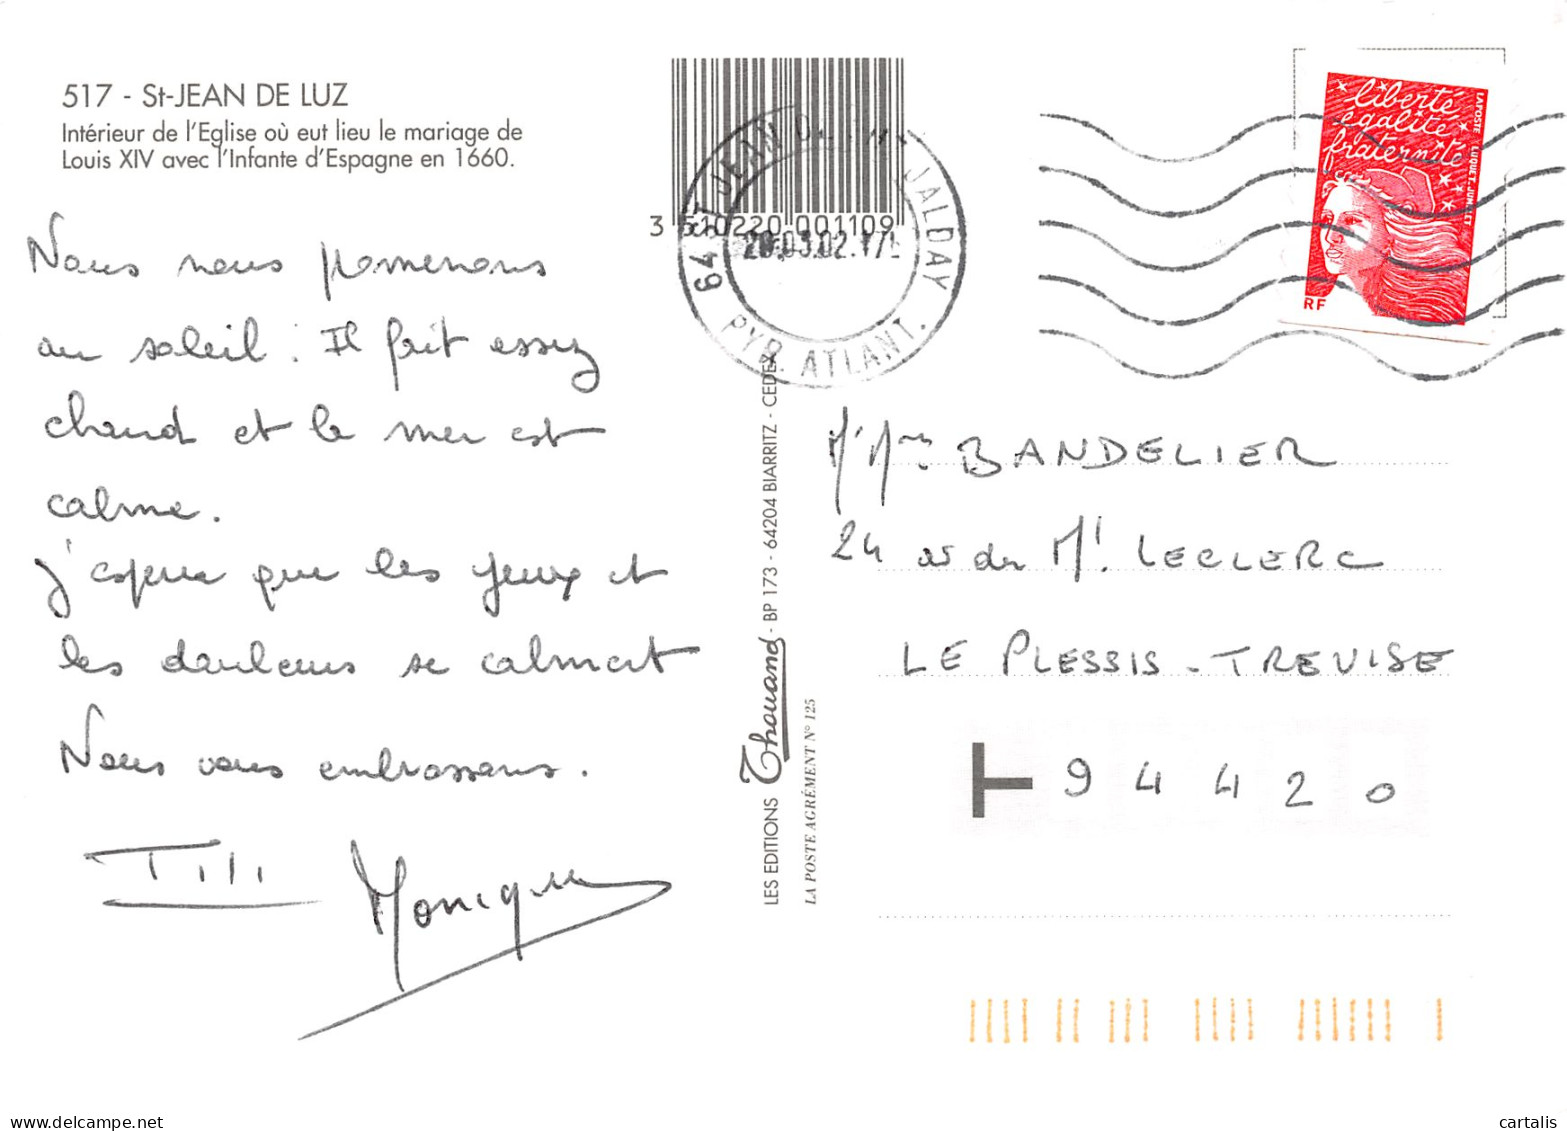 517 - St-JEAN DE LUZ
Intérieur de l'Eglise où eut lieu le mariage de
Louis XIV avec l'Infante d'Espagne en 1660.
Nous nous promenons
au soleil : Il fait assez
chaud et la mer est
calme.
J'espère que les yeux et
les douleurs se calment
Nous vous embrassons.
Titi Monique
3 510220 001109
64 ST JEAN DE LUZ JALDAY
20.03.02.17
PYR. ATLANT.
LES EDITIONS Thouand - BP 173 - 64204 BIARRITZ - CEDEX
LA POSTE AGRÉMENT N° 125
liberté
égalité
fraternité
LA POSTE LUQUET, JUMELET
RF
M. Mme BANDELIER
24 av du Ml LECLERC
LE PLESSIS-TREVISE
94420
www.delcampe.net
cartalis